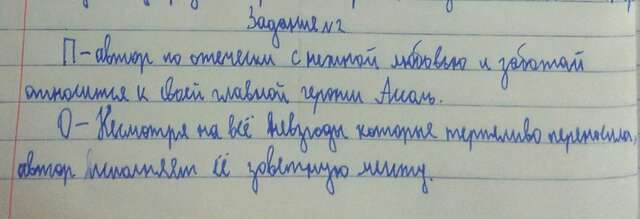 Задание №2
П – автор по отечески с нежной любовью и заботай
относится к своей главной героини Ассоль.
О – Несмотря на всё невзгоды которые терпливо переносила,
автор исполняет её заветную мечту.